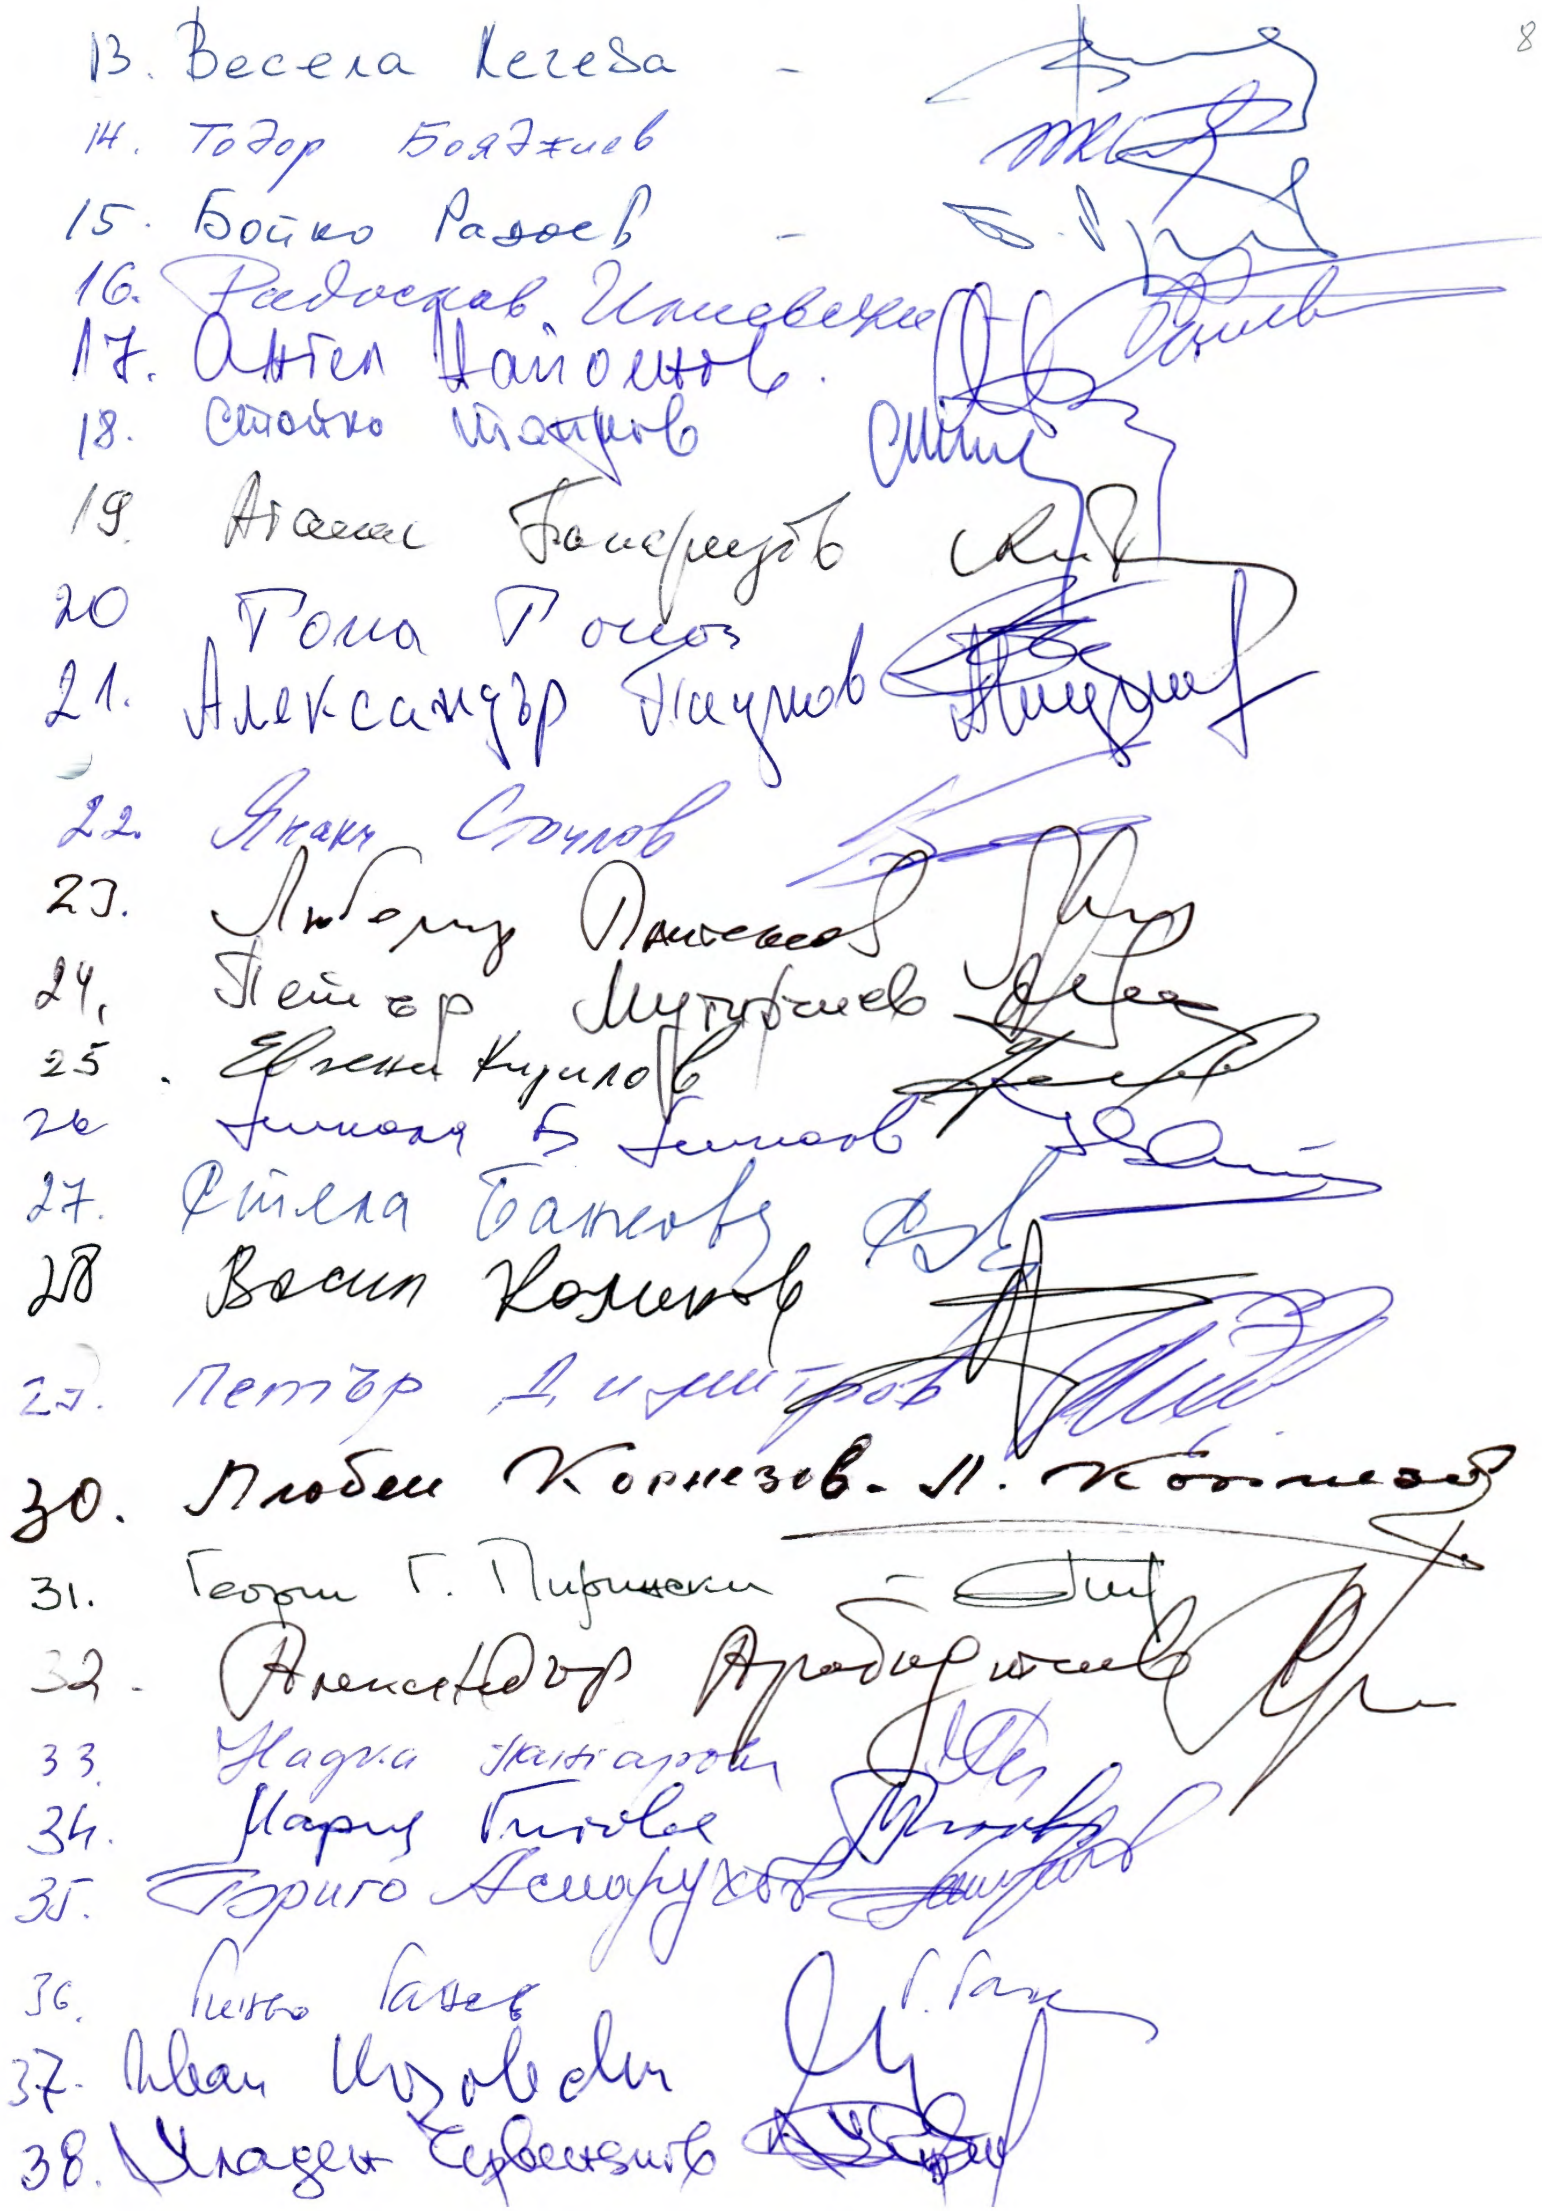 8
13. Весела Лечева -
14. Тодор Бояджиев
15. Бойко Радоев -
16. Радослав
17. Ангел Найденов.
18. Стойко Танков
19. Атанас Папаризов
20 Тома Томов
21. Александър Паунов
22. Янаки Стоилов
23. Любомир Пантелеев
24. Петър Мутафчиев
25. Евгени Кирилов
26 Никола Б Николов
27. Стела Банкова
28 Васил Калинов
29. Петър Димитров
30. Любен Корнезов. Л. Корнезов
31. Георги Г. Пирински -
32. Александър Арабаджиев
33. Надка Пангарова
34. Мария Гигова
35. Бориго Аспарухов
36. Гиньо Ганев Г. Ган
37. Иван
38. Младен Червеняков